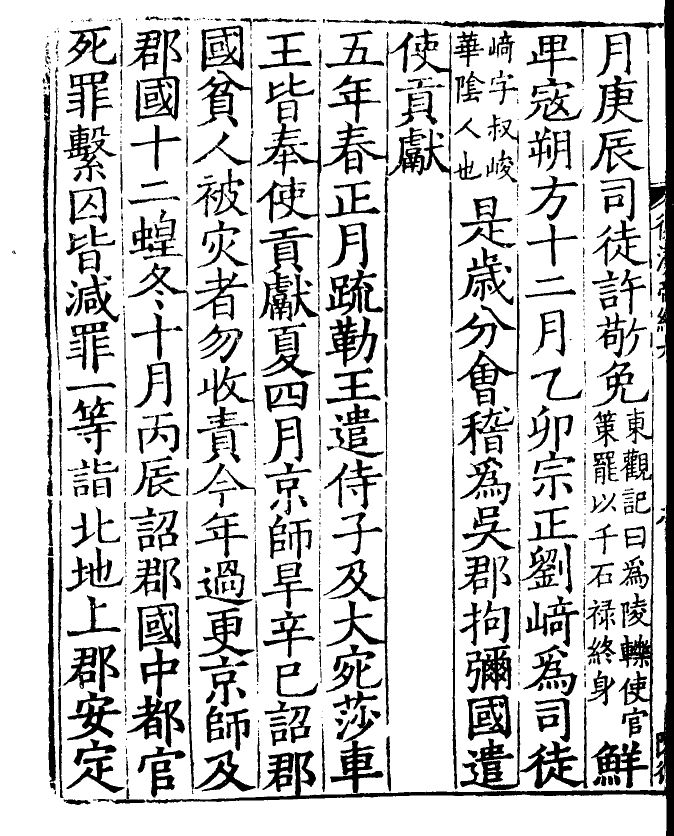 月庚辰司徒許敬免東觀記曰爲陵轢使官策罷以千石祿終身鮮
卑寇朔方十二月乙卯宗正劉崎爲司徒
崎字叔峻華陰人也是歲分會稽爲吳郡拘彌國遣
使貢獻
五年春正月疏勒王遣侍子及大宛莎車
王皆奉使貢獻夏四月京師旱辛巳詔郡
國貧人被灾者勿收責今年過更京師及
郡國十二蝗冬十月丙辰詔郡國中都官
死罪繫囚皆減罪一等詣北地上郡安定